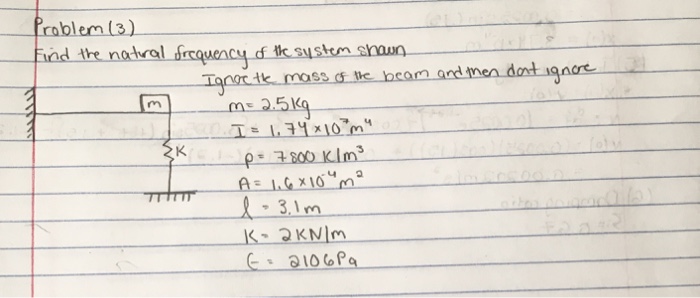 Problem (3)
Find the natural frequency of the system shown
Ignore the mass of the beam and then dont ignore
m
m = 2.5 kg
I = 1.74 x 10⁷ m⁴
K
ρ = 7800 K/m³
A = 1.6 x 10⁻⁴ m²
l = 3.1 m
K = 2 KN/m
E = 210 GPa